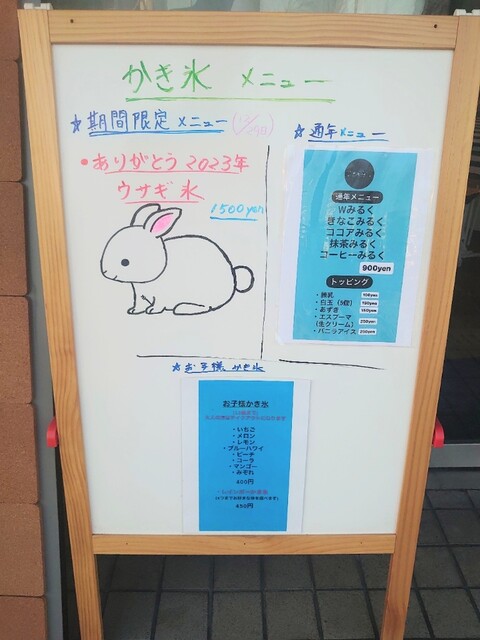 かき氷 メニュー
☆期間限定メニュー
・ありがとう2023年
ウサギ氷
1500yen
☆通年メニュー
通年メニュー
Wみるく
きなこみるく
ココアみるく
抹茶みるく
コーヒーみるく
900yen
トッピング
・練乳
・白玉 (5個)
・あずき
・エスプーマ
(生クリーム)
・バニラアイス
☆お子様かき氷
お子様かき氷
・いちご
・メロン
・レモン
・ブルーハワイ
・ピーチ
・コーラ
・マンゴー
・みぞれ
400円
450円